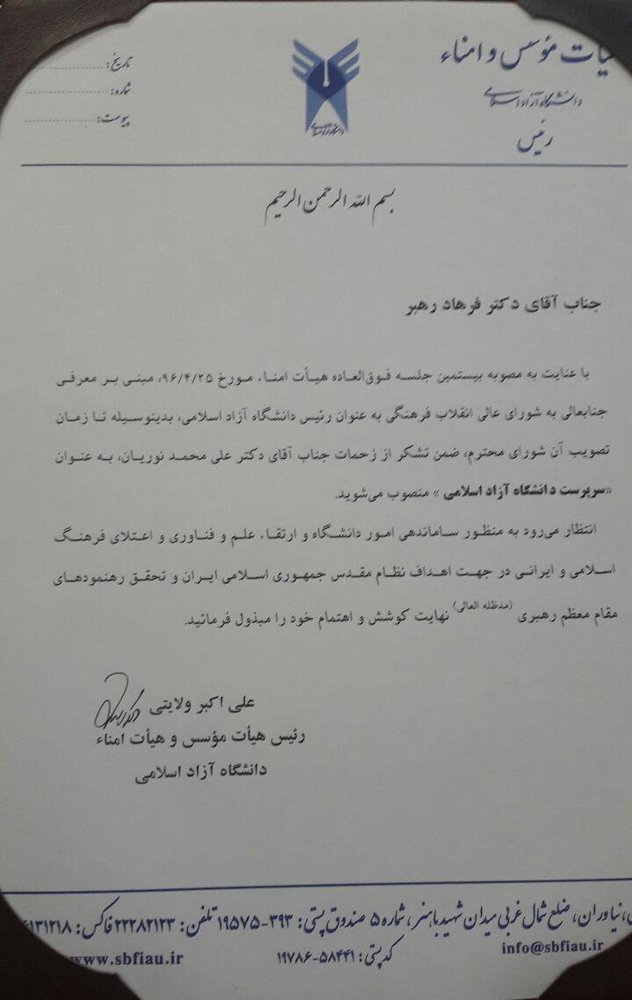 هیأت مؤسس و امناء
دانشگاه آزاد اسلامی
رئیس
تاریخ:
شماره:
پیوست:
دانشگاه آزاد اسلامی
بسم الله الرحمن الرحیم
جناب آقای دکتر فرهاد رهبر
با عنایت به مصوبه بیستمین جلسه فوق‌العاده هیأت امناء مورخ ۹۶/۴/۲۵، مبنی بر معرفی
جنابعالی به شورای عالی انقلاب فرهنگی به عنوان رئیس دانشگاه آزاد اسلامی، بدینوسیله تا زمان
تصویب آن شورای محترم، ضمن تشکر از زحمات جناب آقای دکتر علی محمد نوریان، به عنوان
«سرپرست دانشگاه آزاد اسلامی» منصوب می‌شوید.
انتظار می‌رود به منظور ساماندهی امور دانشگاه و ارتقاء علم و فناوری و اعتلای فرهنگ
اسلامی و ایرانی در جهت اهداف نظام مقدس جمهوری اسلامی ایران و تحقق رهنمودهای
مقام معظم رهبری (مدظله العالی) نهایت کوشش و اهتمام خود را مبذول فرمائید.
علی اکبر ولایتی
رئیس هیأت مؤسس و هیأت امناء
دانشگاه آزاد اسلامی
نیاوران، ضلع شمال غربی میدان شهید باهنر، شماره ۵ صندوق پستی: ۳۹۳-۱۹۵۷۵ تلفن: ۲۲۲۸۲۱۲۳ فاکس:
کد پستی: ۵۸۴۴۱-۱۹۷۸۶
info@sbfiau.ir
www.sbfiau.ir